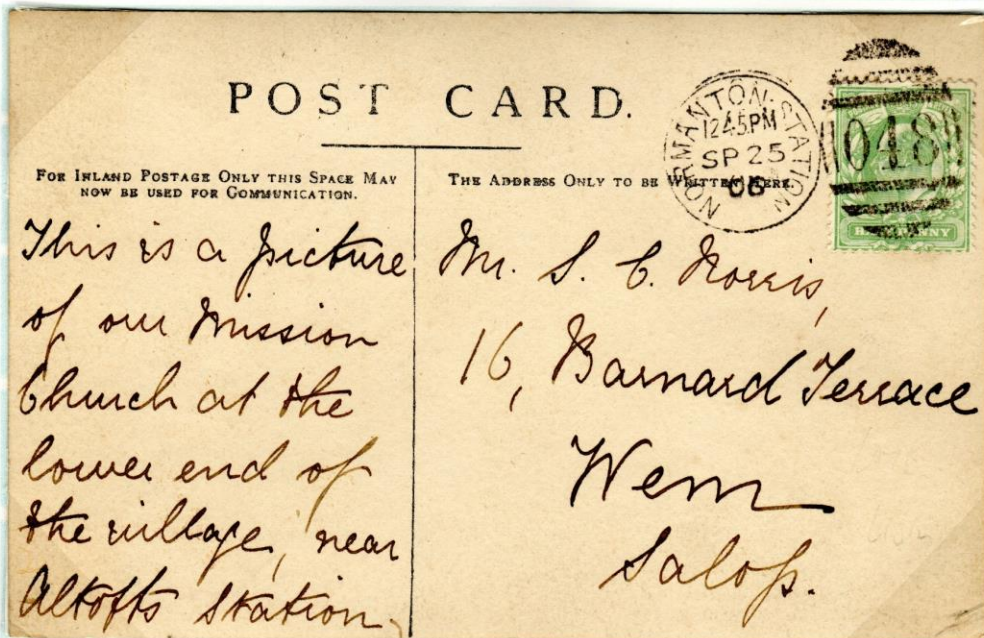 POST CARD.
FOR INLAND POSTAGE ONLY THIS SPACE MAY
NOW BE USED FOR COMMUNICATION.
THE ADDRESS ONLY TO BE WRITTEN HERE.
NORMANTON STATION
12.45PM
SP 25
06
048
HALFPENNY
This is a picture
of our Mission
Church at the
lower end of
the village, near
Altofts Station.
Mr. S. C. Norris,
16, Barnard Terrace
Wem
Salop.